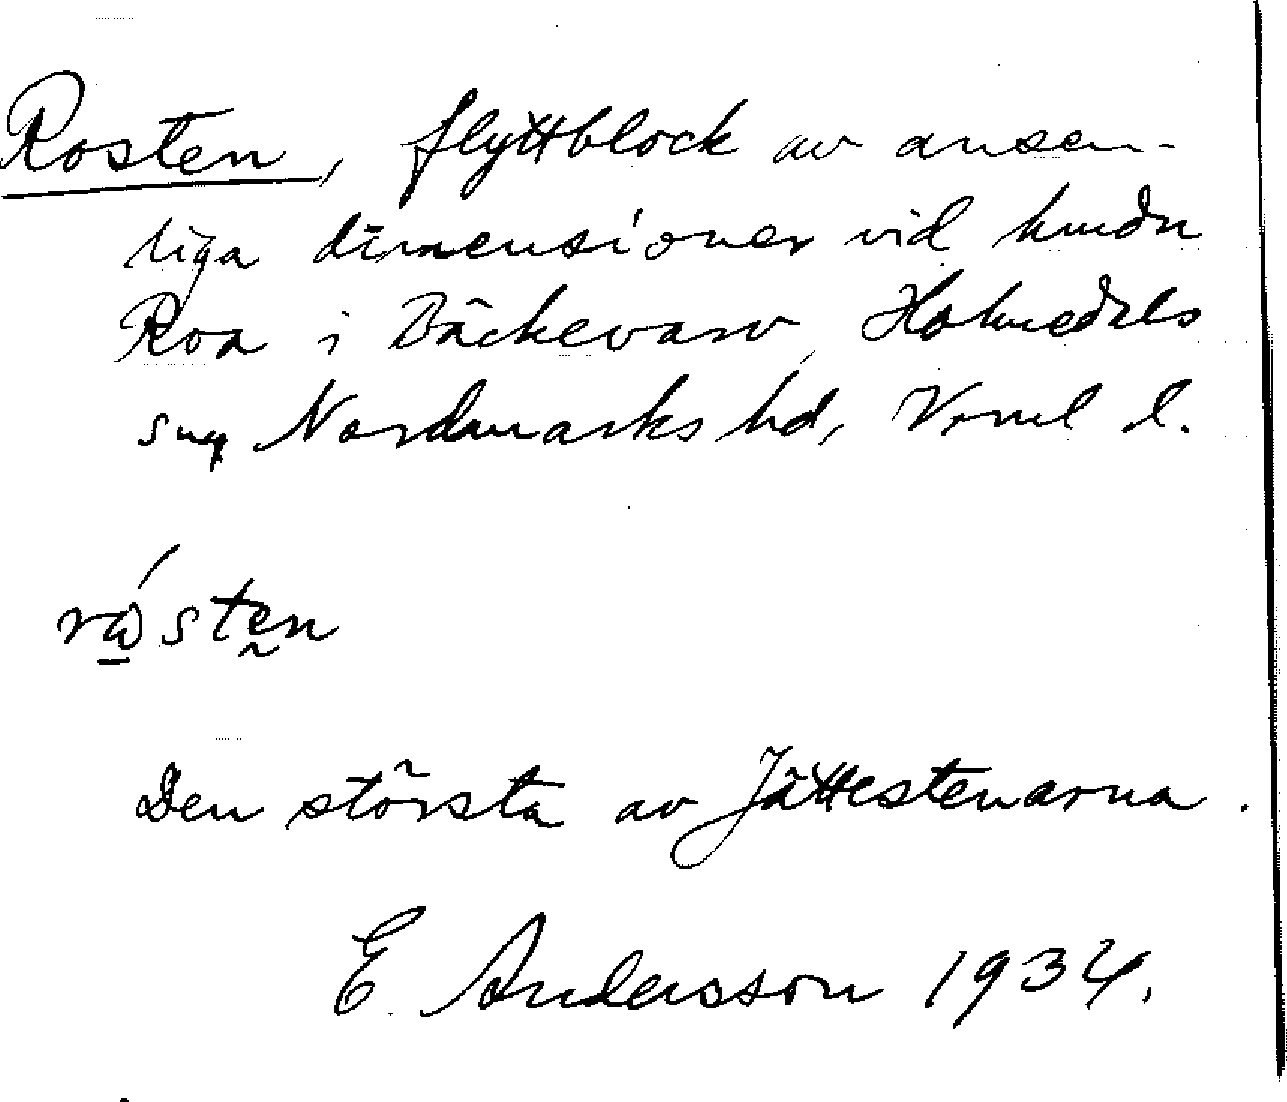 Rosten, flyttblock av ansen-
liga dimensioner vid hmdn
Roa i Bäckevarv, Holmedals
sn, Nordmarks hd, Vrml l.
råsten
Den största av Jättestenarna.
E. Andersson 1934.